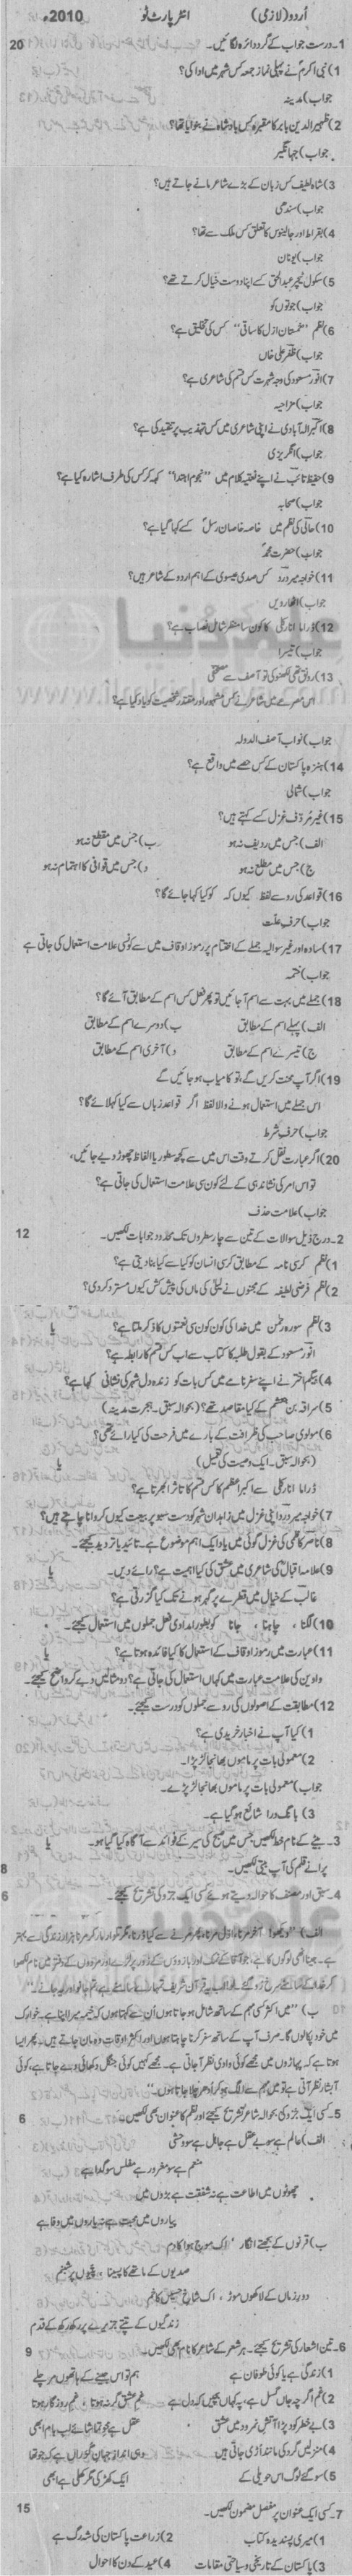 اُردو (لازمی) انٹرپارٹ ٹو 2010ء
1۔ درست جواب کے گرد دائرہ لگائیں۔ 20
1) نبی اکرمؐ نے پہلی نماز جمعہ کس شہر میں ادا کی؟
جواب) مدینہ
2) ظہیر الدین بابر کا مقبرہ کس بادشاہ نے بنوایا تھا؟
جواب) جہانگیر
3) شاہ لطیف کس زبان کے بڑے شاعر مانے جاتے ہیں؟
جواب) سندھی
4) بقراط اور جالینوس کا تعلق کس ملک سے تھا؟
جواب) یونان
5) سکول ٹیچر عبدالحق کسے اپنا دوست خیال کرتے تھے؟
جواب) جوتوں کو
6) نظم "خمستان ازل کا ساقی" کس کی تخلیق ہے؟
جواب) ظفر علی خاں
7) انور مسعود کی وجہ شہرت کس قسم کی شاعری ہے؟
جواب) مزاحیہ
8) اکبر الہ آبادی نے اپنی شاعری میں کس تہذیب پر تنقید کی ہے؟
جواب) انگریزی
9) حفیظ تائب نے اپنے نعتیہ کلام میں "نجوم اہتدا" کہہ کر کس کی طرف اشارہ کیا ہے؟
جواب) صحابہ
10) حالی کی نظم میں خاصہ خاصان رسل کسے کہا گیا ہے؟
جواب) حضرت محمدؐ
11) خواجہ میر درد کس صدی عیسوی کے اہم اردو کے شاعر ہیں؟
جواب) اٹھارویں
12) ڈراما انارکلی کا کون سا منظر شامل نصاب ہے؟
جواب) تیسرا
13) رونق تھی لکھنؤ کی تو آصف سے مصحفی
اس مصرعے میں شاعر نے کس مشہور اور مقتدر شخصیت کو یاد کیا ہے؟
جواب) نواب آصف الدولہ
14) ہنزہ پاکستان کے کس حصے میں واقع ہے؟
جواب) شمالی
15) غیر مُردّف غزل کسے کہتے ہیں؟
الف) جس میں ردیف نہ ہو ب) جس میں مقطع نہ ہو
ج) جس میں مطلع نہ ہو د) جس میں قوافی کا اہتمام نہ ہو
16) قواعد کی رو سے لفظ کیوں کہ کو کیا کہا جائے گا؟
جواب) حرف علت
17) سادہ اور غیر سوالیہ جملے کے اختتام پر رموز اوقاف میں سے کونسی علامت استعمال کی جاتی ہے
جواب) ختمہ
18) جملے میں بہت سے اسم آ جائیں تو پھر فعل کس اسم کے مطابق آئے گا؟
الف) پہلے اسم کے مطابق ب) دوسرے اسم کے مطابق
ج) تیسرے اسم کے مطابق د) آخری اسم کے مطابق
19) اگر آپ محنت کریں گے، تو کامیاب ہو جائیں گے
اس جملے میں استعمال ہونے والا لفظ اگر قواعد زباں سے کیا کہلائے گا؟
جواب) حرف شرط
20) اگر عبارت نقل کرتے وقت اس میں سے کچھ سطور یا الفاظ چھوڑ دیے جائیں،
تو اس امر کی نشاندہی کے لئے کون سی علامت استعمال کی جاتی ہے؟
جواب) علامت حذف
2۔ درج ذیل سوالات کے تین سے چار سطروں تک محدود جوابات لکھیں۔ 12
1) نظم کرسی نامہ کے مطابق کرسی انسان کو کیا سے کیا بنا دیتی ہے؟
2) نظم فرضی لطیفہ کے مجنوں نے لیلیٰ کی ماں کی پیش کش کیوں مسترد کر دی؟
3) نظم سورہ رحمٰن میں خدا کی کون کون سی نعمتوں کا ذکر ملتا ہے؟ یا
انور مسعود کے بقول طلبہ کا کتاب سے اب کس قسم کا رابطہ ہے؟
4) بیگم اختر نے اپنے سفر نامے میں کس بات کو زندہ دل شہر کی نشانی کہا ہے؟
5) سراقہ بن جعشم کے کیا مقاصد تھے؟ (بحوالہ سبق۔ ہجرت مدینہ)
6) مولوی صاحب کی ظرافت کے بارے میں فرحت کی کیا رائے تھی؟
(بحوالہ سبق۔ ایک وصیت کی تعمیل) یا
ڈراما انارکلی سے اکبر اعظم کا کس قسم کا تاثر ابھرتا ہے؟
7) خواجہ میر درد اپنی غزل میں زاہدان شہر کو دست سبو پر بیعت کیوں کروانا چاہتے ہیں؟
8) ناصر کاظمی کی غزل گوئی میں یاد ایک اہم موضوع ہے۔ تائید یا تردید کیجئے۔
9) علامہ اقبال کی شاعری میں عشق کی کیا اہمیت ہے؟ رائے دیں۔ یا
غالب کے خیال میں قطرے پر گہر ہونے تک کیا گزرتی ہے؟
10) لگنا، چاہنا، جانا کو بطور امدادی فعل جملوں میں استعمال کیجئے۔
11) عبارت میں رموز اوقاف کے استعمال کا کیا فائدہ ہوتا ہے؟ یا
واوین کی علامت عبارت میں کہاں استعمال کی جاتی ہے؟ دو مثالیں دے کر واضح کیجئے۔
12) مطابقت کے اصولوں کی رو سے جملوں کو درست کیجئے۔
1) کیا آپ نے اخبار خریدی ہے؟
2) معمولی بات پر ماموں بھانجا لڑ پڑا۔
جواب) معمولی بات پر ماموں بھانجا لڑ پڑے۔
3) بانگ درا شائع ہو گیا ہے۔
3۔ بیٹے کے نام خط لکھیں جس میں صبح کی سیر کے فوائد سے آگاہ کیا گیا ہو۔ یا
پرانے قلم کی آپ بیتی لکھیں۔ 8
4۔ سبق اور مصنف کا حوالہ دیتے ہوئے کسی ایک جزو کی تشریح کیجئے۔ 6
ب) "میں اکثر کسی مہم کے ساتھ شامل ہو جاتا ہوں اُن سے کہتا ہوں کہ خیمہ میرا اپنا ہے۔ خوراک
میں خود پکا لوں گا۔ صرف آپ کے ساتھ سفر کرنا چاہتا ہوں اور اکثر اوقات وہ مان جاتے ہیں۔ پھر ایسا
ہوتا ہے کہ پہاڑوں میں مجھے کوئی وادی نظر آ جاتی ہے۔ مجھے کہیں کوئی جنگل دکھائی دے جاتا ہے، کوئی
آبشار نظر آتی ہے تو میں مہم سے الگ ہو کر اُدھر چلا جاتا ہوں۔"
5۔ کسی ایک جزو کی بحوالہ شاعر تشریح کیجئے اور نظم کا عنوان بھی لکھیں۔ 6
الف) عالم ہے سو بے عقل ہے جاہل ہے سو وحشی
منعم ہے سو مغرور ہے مفلس سو گدا ہے
چھوٹوں میں اطاعت ہے نہ شفقت ہے بڑوں میں
پیاروں میں محبت ہے نہ یاروں میں وفا ہے
ب) قرنوں کے بجھتے انگار، اک موج ہوا کا دم
صدیوں کے ماتھے کا پسینا، پتیوں پر شبنم
دور زماں کے لاکھوں موڑ، اک شاخ حسیں کا خم
زندگیوں کے تپتے جزیرے پر رکھ رکھ کے قدم
6۔ تین اشعار کی تشریح کیجئے۔ ہر شعر کے شاعر کا نام بھی لکھیں۔ 9
1) زندگی ہے یا کوئی طوفان ہے ہم تو اس جینے کے ہاتھوں مر چلے
2) غم اگرچہ جاں گسل ہے، پہ کہاں بچیں کہ دل ہے غم عشق گر نہ ہوتا، غم روزگار ہوتا
3) بے خطر کود پڑا آتش نمرود میں عشق عقل ہے محو تماشائے لب بام ابھی
4) منزلیں گرد کی مانند اڑی جاتی ہیں وہی انداز جہان گزراں ہے کہ جو تھا
5) سو گئے لوگ اس حویلی کے ایک کھڑکی مگر کھلی ہے ابھی
7۔ کسی ایک عنوان پر مفصل مضمون لکھیں۔ 15
1) میری پسندیدہ کتاب 2) زراعت پاکستان کی شہ رگ ہے
3) پاکستان کے تاریخی و سیاحتی مقامات 4) عید کے دن کا احوال